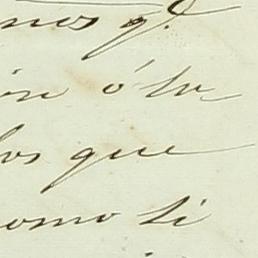 nos q.e
ón ó la
los que
como si